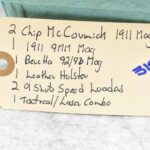 2 Chip McCormick 1911 Mag
1 1911 9MM Mag
1 Beretta 92/98 Mag
1 Leather Holster
2 9 Shot Speed Loaders
1 Tactical/Laser Combo